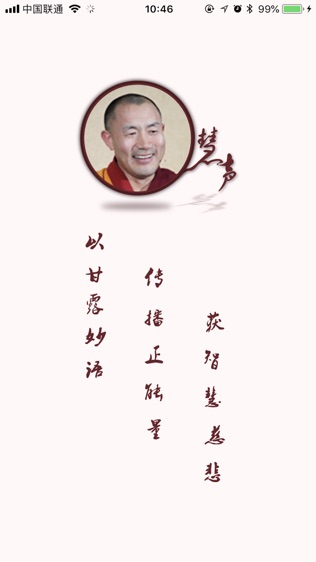 中国联通 10:46 99%
慧声
以甘露妙语
传播正能量
获智慧慈悲